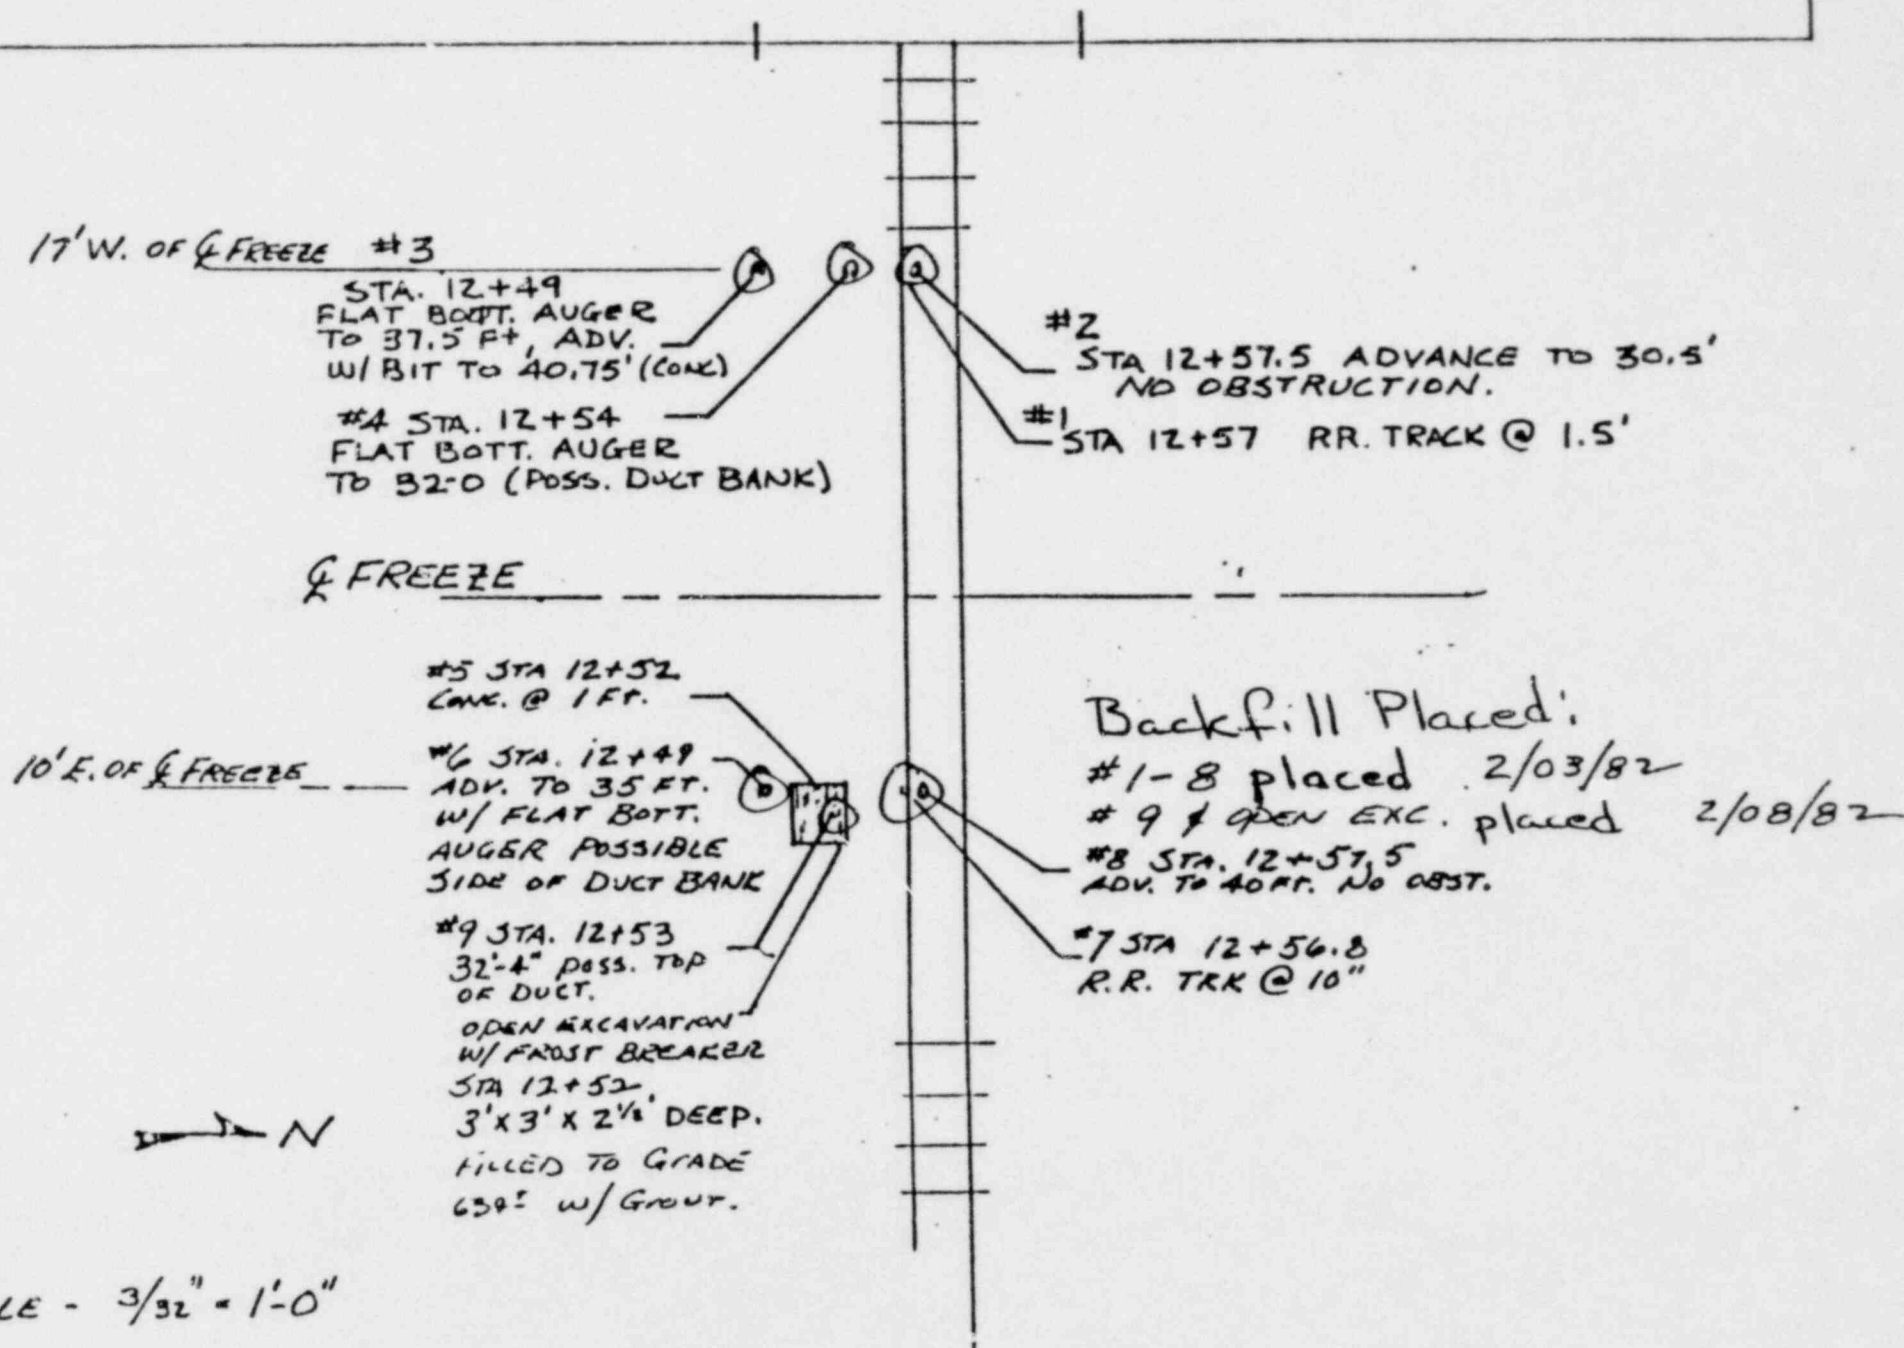 17' W. OF ℄ FREEZE #3
STA. 12+49
FLAT BOTT. AUGER
TO 37.5 Ft, ADV.
W/ BIT TO 40.75' (CONC)
#4 STA. 12+54
FLAT BOTT. AUGER
TO 32-0 (POSS. DUCT BANK)
#2
STA 12+57.5 ADVANCE TO 30.5'
NO OBSTRUCTION.
#1
STA 12+57 RR. TRACK @ 1.5'
℄ FREEZE
#5 STA 12+52
CONC. @ 1 FT.
10' E. OF ℄ FREEZE
#6 STA. 12+49
ADV. TO 35 FT.
W/ FLAT BOTT.
AUGER POSSIBLE
SIDE OF DUCT BANK
#9 STA. 12+53
32'-4" POSS. TOP
OF DUCT.
OPEN EXCAVATION
W/ FROST BREAKER
STA 12+52
3' x 3' x 2 1/2' DEEP.
FILLED TO GRADE
w/ Grout.
Backfill Placed:
#1-8 placed 2/03/82
#9 & OPEN EXC. placed 2/08/82
#8 STA. 12+57.5
ADV. TO 40 FT. NO OBST.
#7 STA 12+56.8
R.R. TRK @ 10"
N
LE - 3/32" = 1'-0"